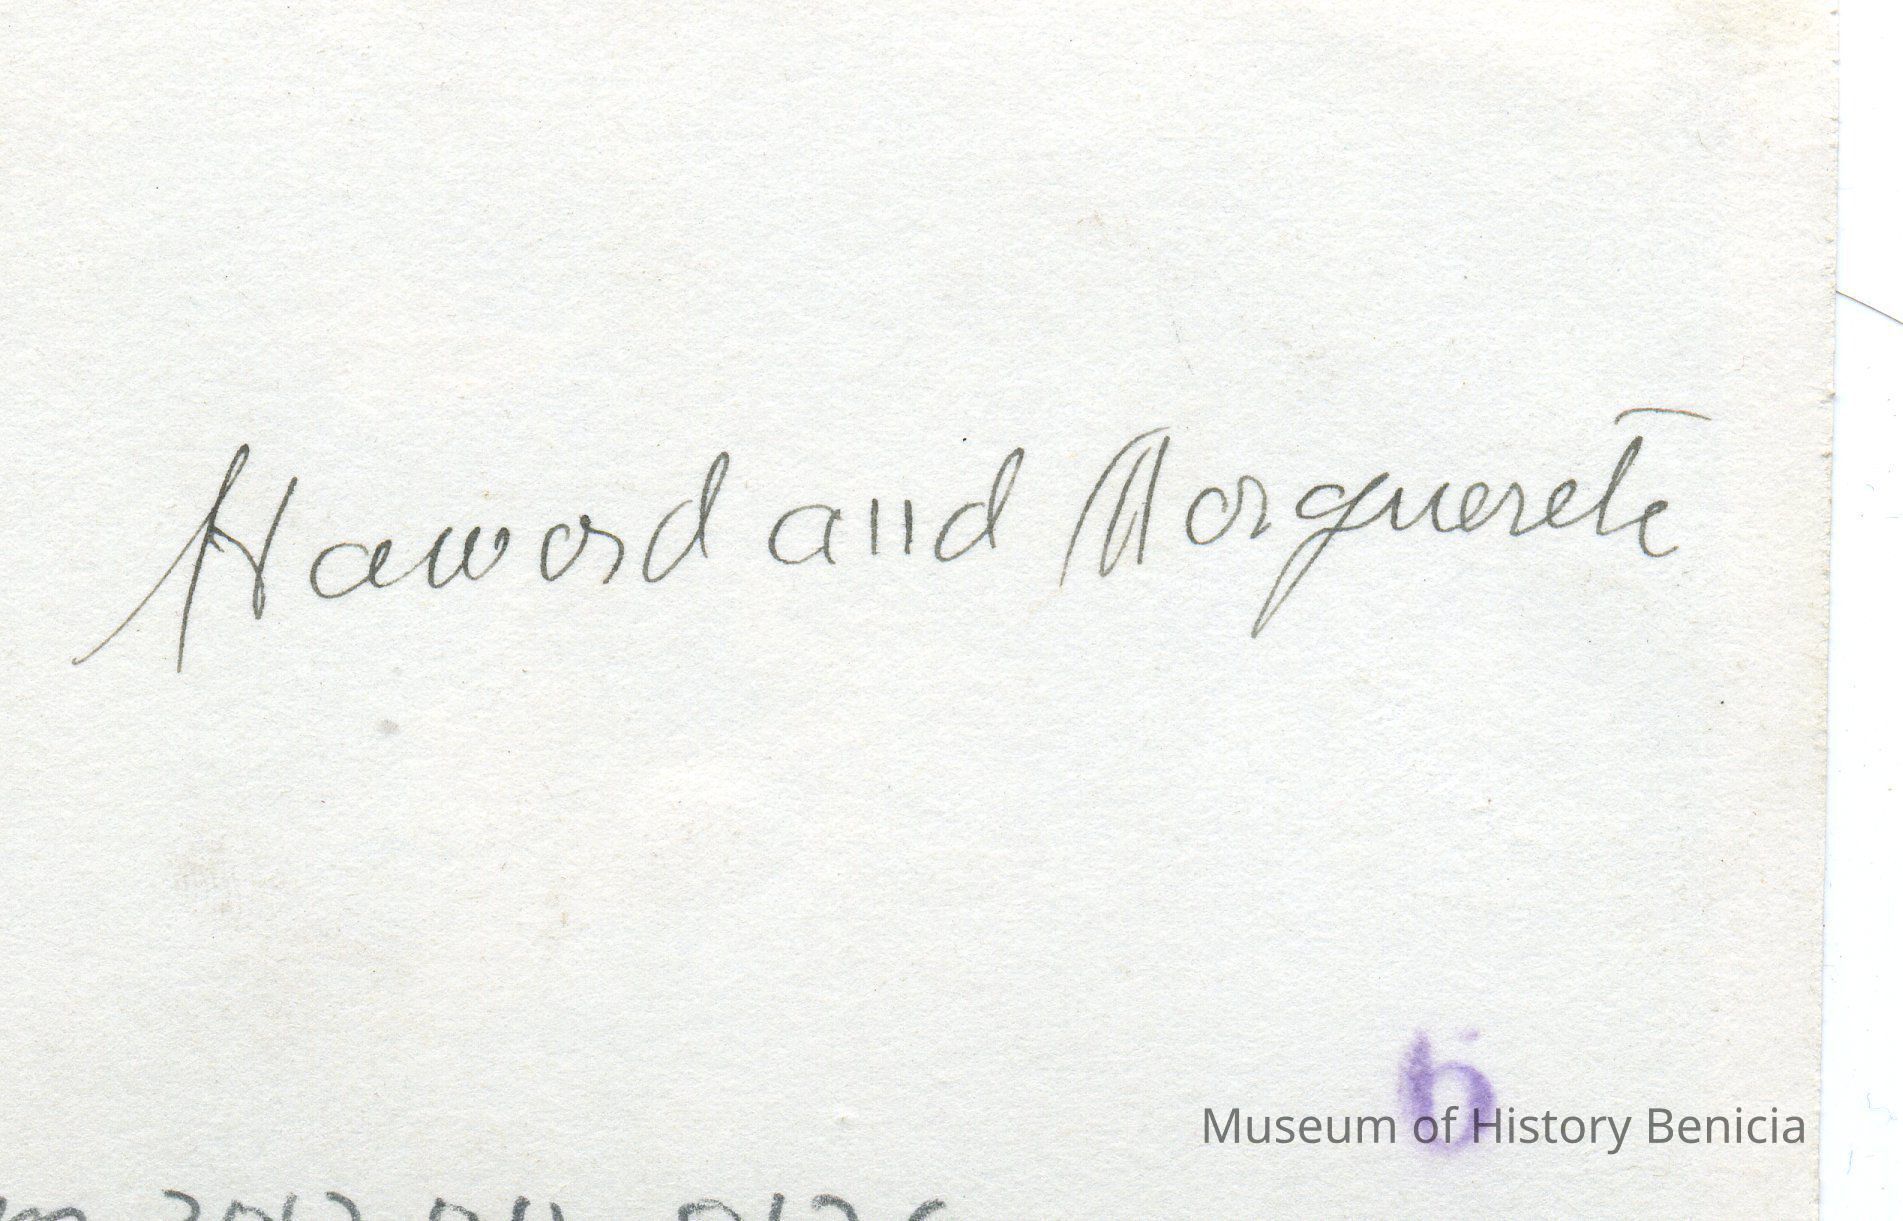 Haword and Marguerete
6
Museum of History Benicia